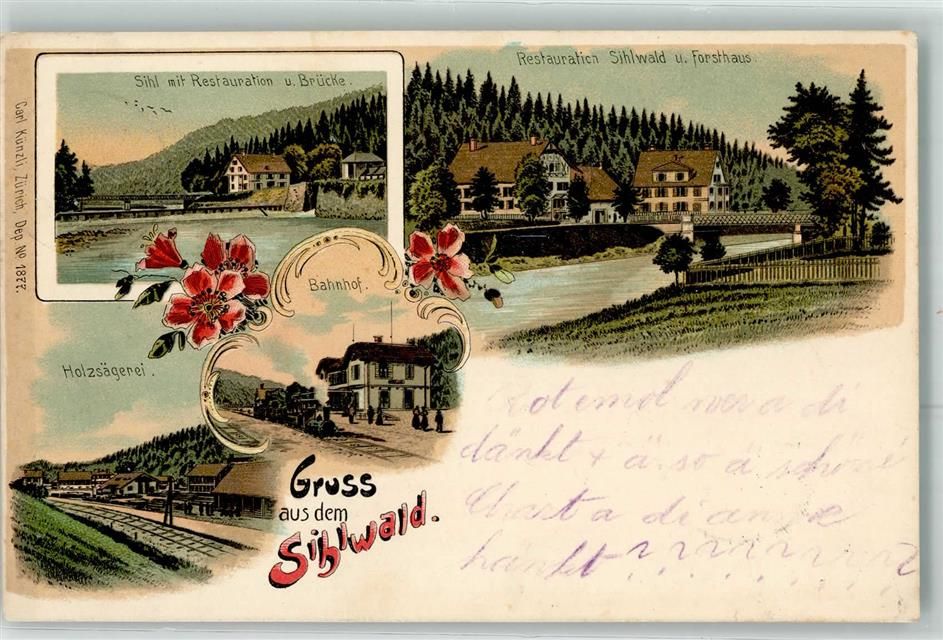 Sihl mit Restauration u. Brücke.
Restauration Sihlwald u. Forsthaus.
Carl Künzli, Zürich, Dep No 1877.
Bahnhof.
Holzsägerei.
Gruss
aus dem
Sihlwald.
a di
dänkt + ä so ä schöne
Chart a di
hänkt ? ? ? ? ? ? ? ?